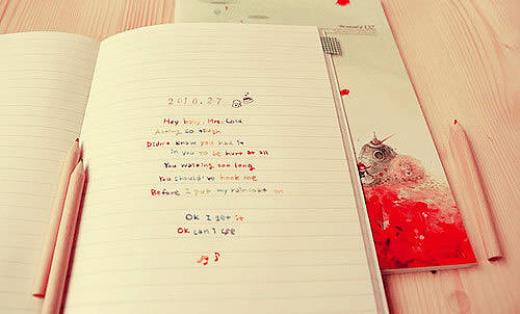 2010.27
Hey baby, Mrs. Cold
Acting so tough
Didn't know you had it
in you to be hurt at all
You waiting too long
You should've hook me
Before I put my raincoat on
Ok I get it
OK can I see